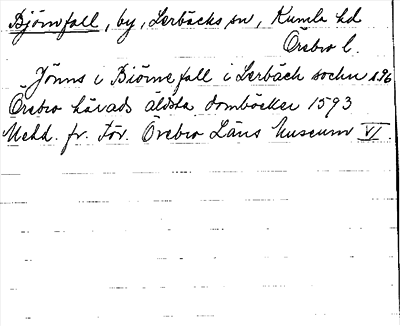 Björnfall, by, Lerbäcks sn, Kumla hd
Örebro l.
Jönns i Biörnefall i Lerbäch sochn s.96
Örebro härads äldsta domböcker 1593
Medd. fr. För. Örebro Läns Museum VI.